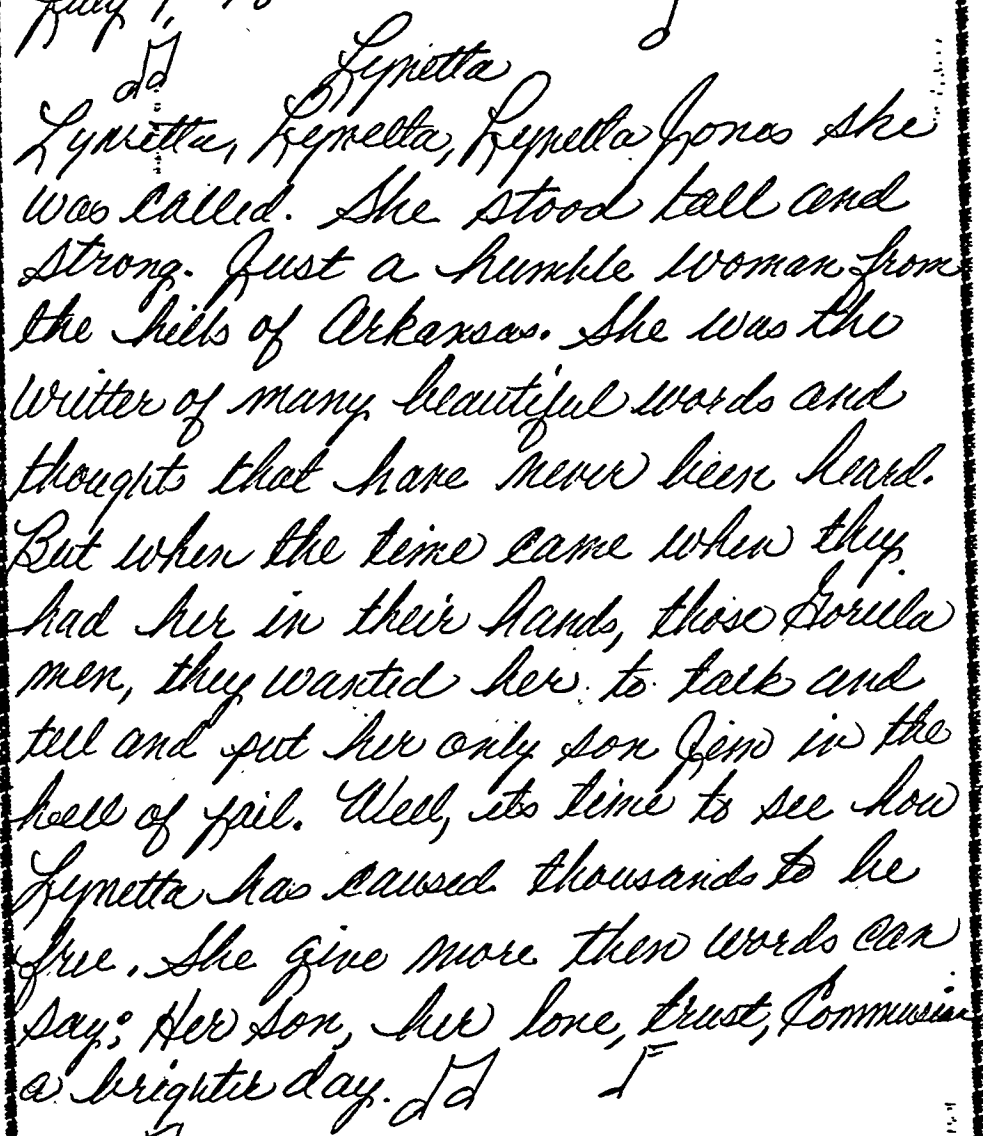 July
Lynetta
Lynetta, Lynetta, Lynetta Jones she
was called. She stood tall and
strong. Just a humble woman from
the hills of Arkansas. She was the
writter of many beautiful words and
thoughts that have never been heard.
But when the time came when they
had her in their hands, those Gorilla
men, they wanted her to talk and
tell and put her only son Jim in the
hell of jail. Well, its time to see how
Lynetta has caused thousands to be
free. She give more then words can
say; Her son, her love, trust,
a brighter day.